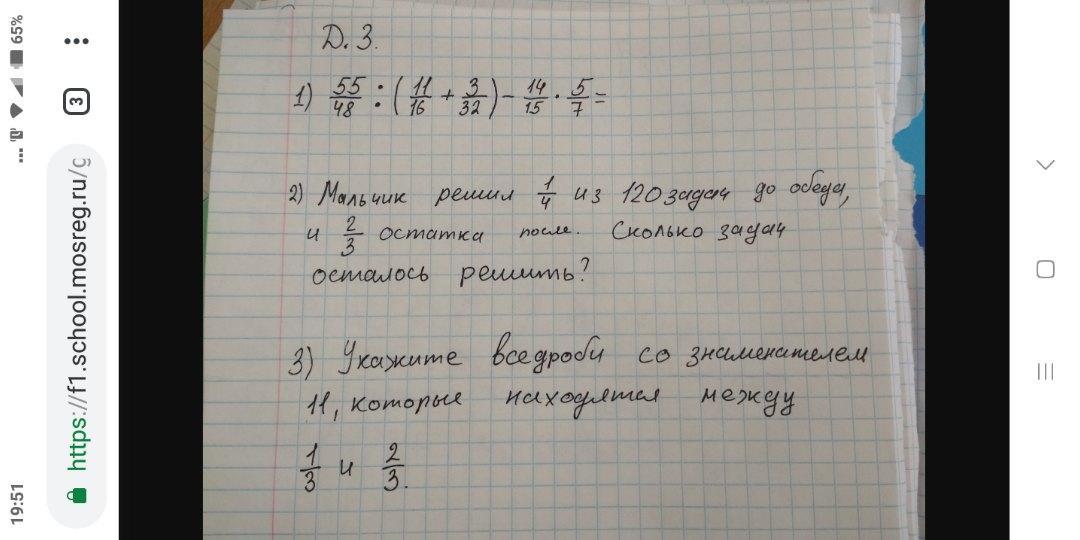 19:51
65%
3
https://f1.school.mosreg.ru/g
Д.З.
1) 55/48 : (11/16 + 3/32) - 14/15 · 5/7 =
2) Мальчик решил 1/4 из 120 задач до обеда,
и 2/3 остатка после. Сколько задач
осталось решить?
3) Укажите все дроби со знаменателем
11, которые находятся между
1/3 и 2/3.